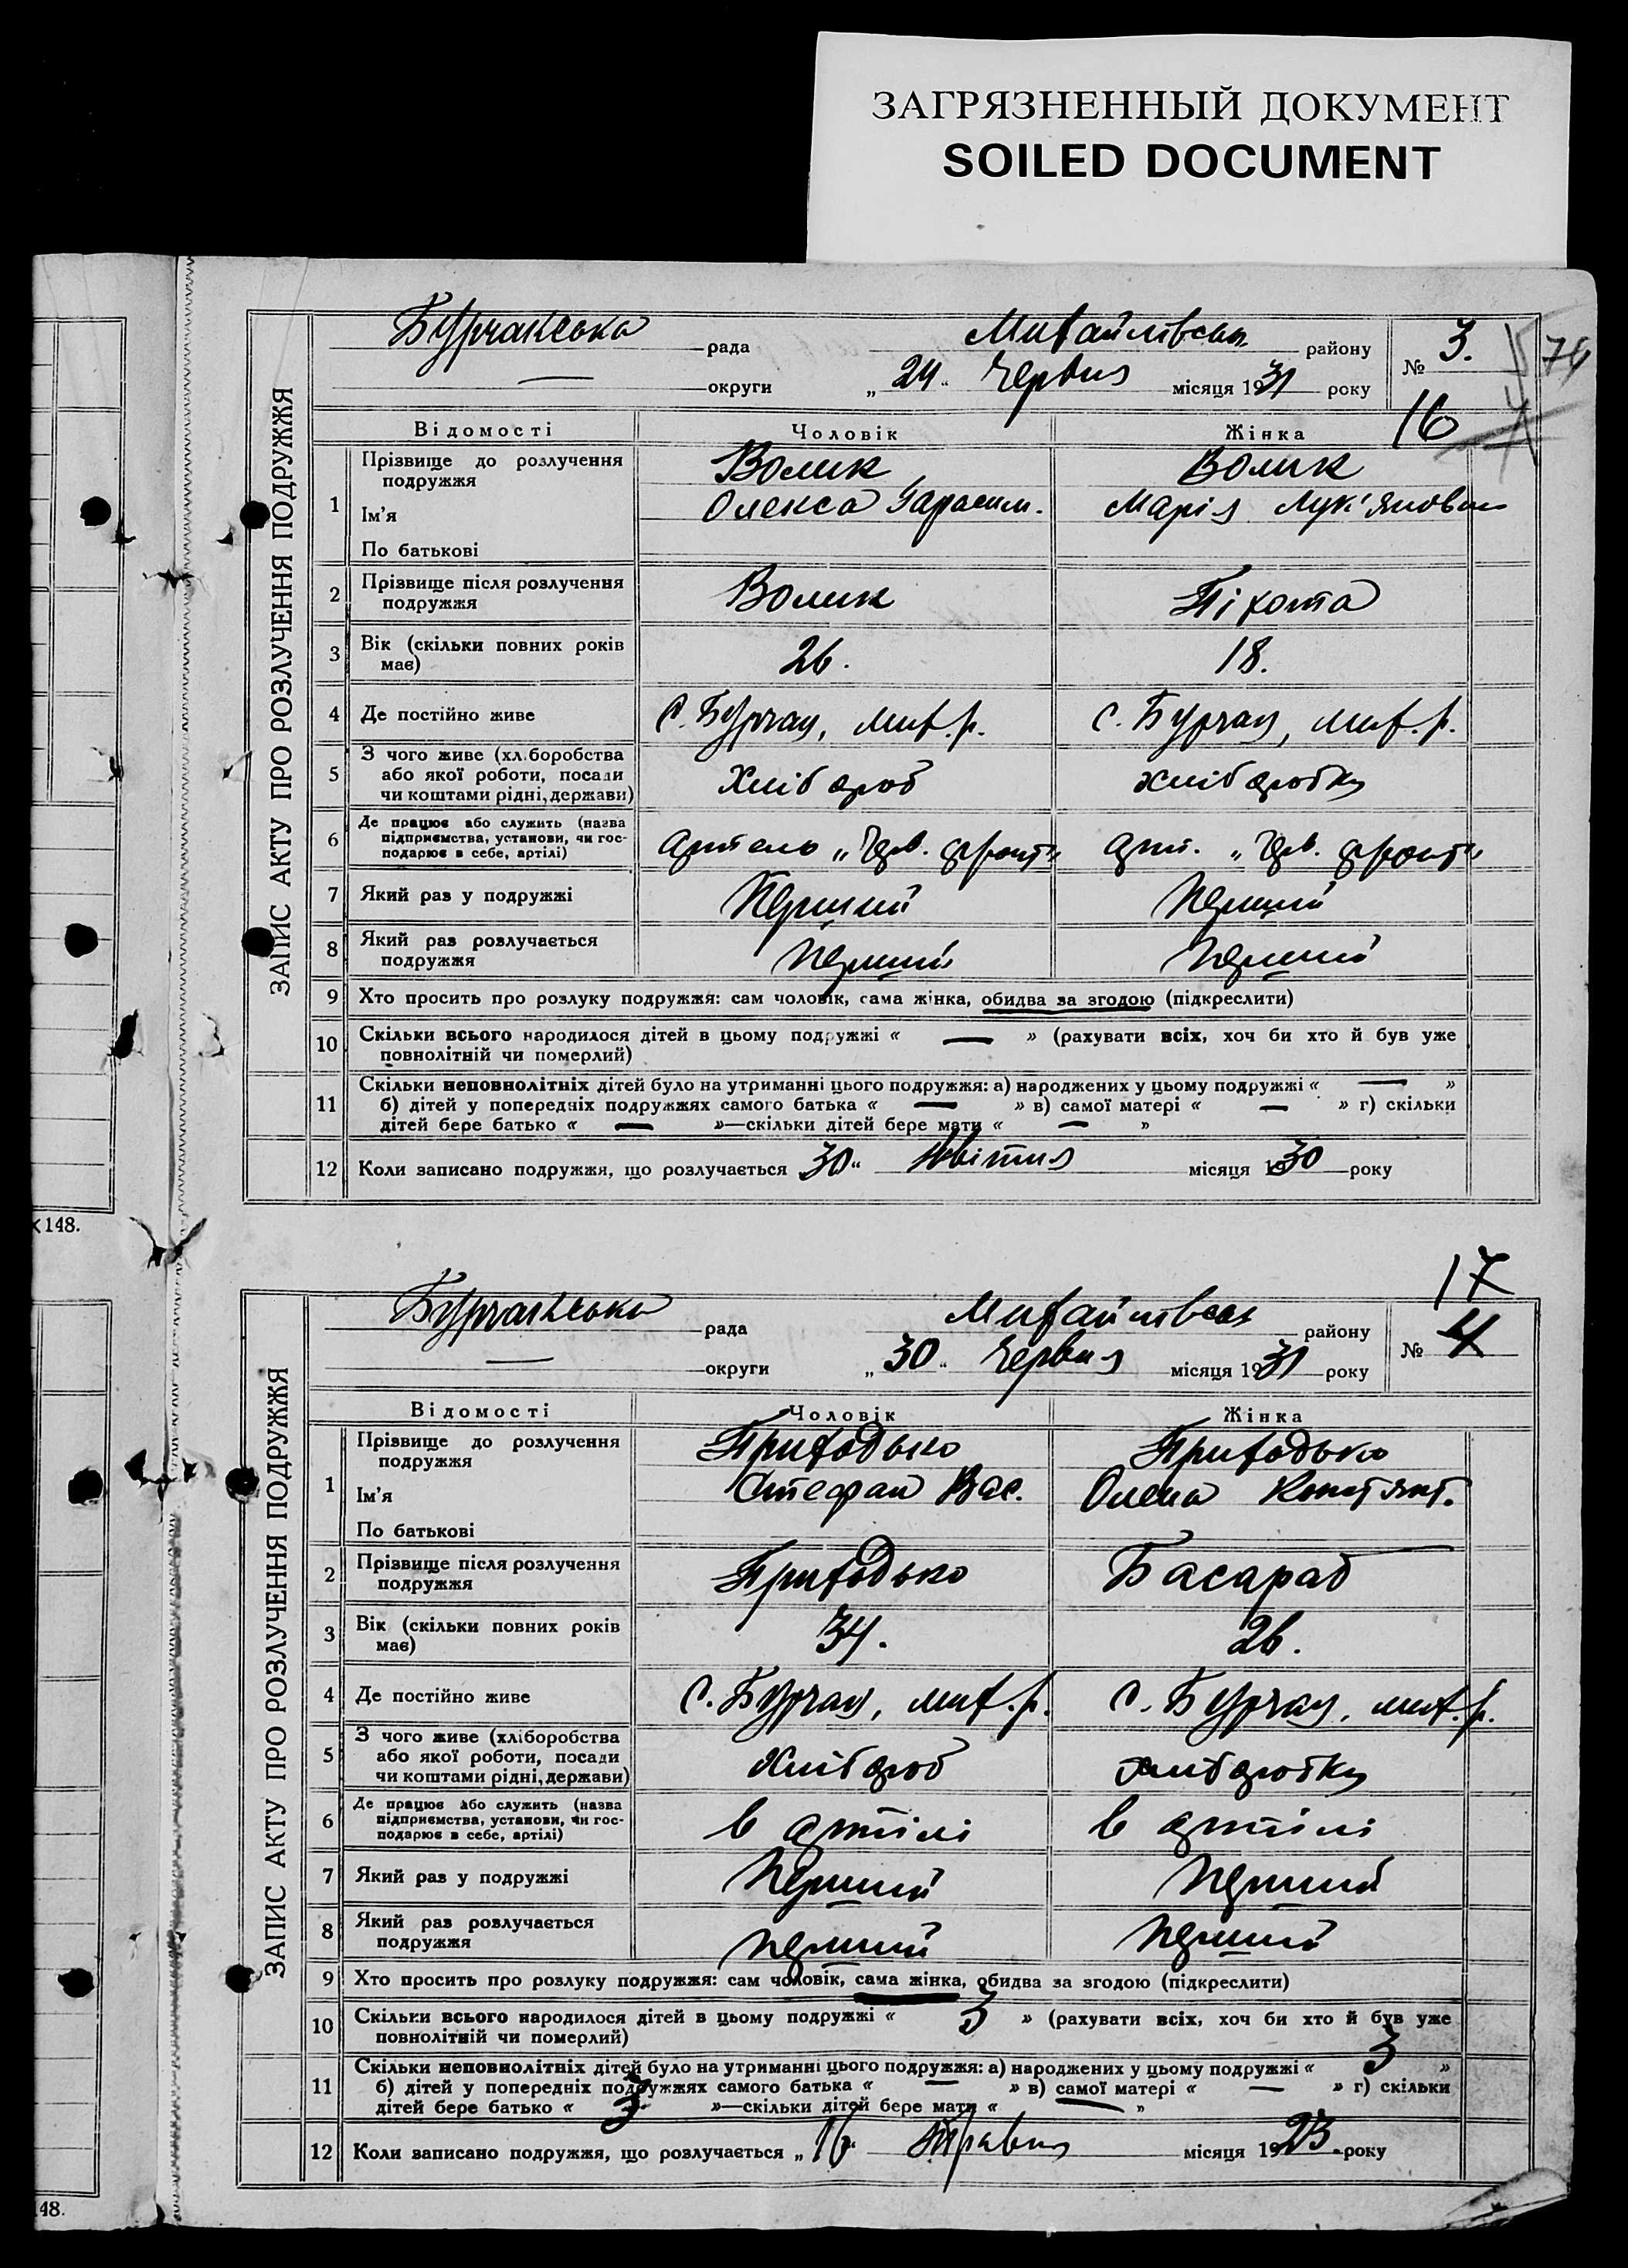 ЗАГРЯЗНЕННЫЙ ДОКУМЕНТ
SOILED DOCUMENT
ЗАПИС АКТУ ПРО РОЗЛУЧЕННЯ ПОДРУЖЖЯ
Бурчакська рада Михайлівськ району № 3. 74
— округи „24" Червня місяця 1931 року
16
Відомості Чоловік Жінка
1 Прізвище до розлучення подружжя Волик Волик
Ім'я Олекса Гарасим. Марія Лук'яновна
По батькові
2 Прізвище після розлучення подружжя Волик Піхота
3 Вік (скільки повних років має) 26. 18.
4 Де постійно живе С. Бурчак, Мих. р. С. Бурчак, Мих. р.
5 З чого живе (хліборобства або якої роботи, посади чи коштами рідні, держави) Хлібороб хліборобка
6 Де працює або служить (назва підприємства, установи, чи господарює в себе, артілі) артель „Черв. фронт" арт. „Черв. фронт"
7 Який раз у подружжі Перший Перший
8 Який раз розлучається подружжя Перший Перший
9 Хто просить про розлуку подружжя: сам чоловік, сама жінка, обидва за згодою (підкреслити)
10 Скільки всього народилося дітей в цьому подружжі « — » (рахувати всіх, хоч би хто й був уже
повнолітній чи померлий)
11 Скільки неповнолітніх дітей було на утриманні цього подружжя: а) народжених у цьому подружжі « — »
б) дітей у попередніх подружжях самого батька « — » в) самої матері « — » г) скільки
дітей бере батько « — »—скільки дітей бере мати « — »
12 Коли записано подружжя, що розлучається 30" Квітня місяця 1930 року
×148.
17
ЗАПИС АКТУ ПРО РОЗЛУЧЕННЯ ПОДРУЖЖЯ
Бурчакська рада Михайлівськ району № 4
— округи „30" Червня місяця 1931 року
Відомості Чоловік Жінка
1 Прізвище до розлучення подружжя Приходько Приходько
Ім'я Стефан Вас. Олена Констянт.
По батькові
2 Прізвище після розлучення подружжя Приходько Басараб
3 Вік (скільки повних років має) 34. 26.
4 Де постійно живе С. Бурчак, Мих. р. С. Бурчак, Мих. р.
5 З чого живе (хліборобства або якої роботи, посади чи коштами рідні, держави) Хлібороб хліборобка
6 Де працює або служить (назва підприємства, установи, чи господарює в себе, артілі) в артілі в артілі
7 Який раз у подружжі Перший Перший
8 Який раз розлучається подружжя Перший Перший
9 Хто просить про розлуку подружжя: сам чоловік, сама жінка, обидва за згодою (підкреслити)
10 Скільки всього народилося дітей в цьому подружжі « 3 » (рахувати всіх, хоч би хто й був уже
повнолітній чи померлий)
11 Скільки неповнолітніх дітей було на утриманні цього подружжя: а) народжених у цьому подружжі « 3 »
б) дітей у попередніх подружжях самого батька « — » в) самої матері « — » г) скільки
дітей бере батько « 3 »—скільки дітей бере мати « — »
12 Коли записано подружжя, що розлучається „16" Травня місяця 1923 року
148.